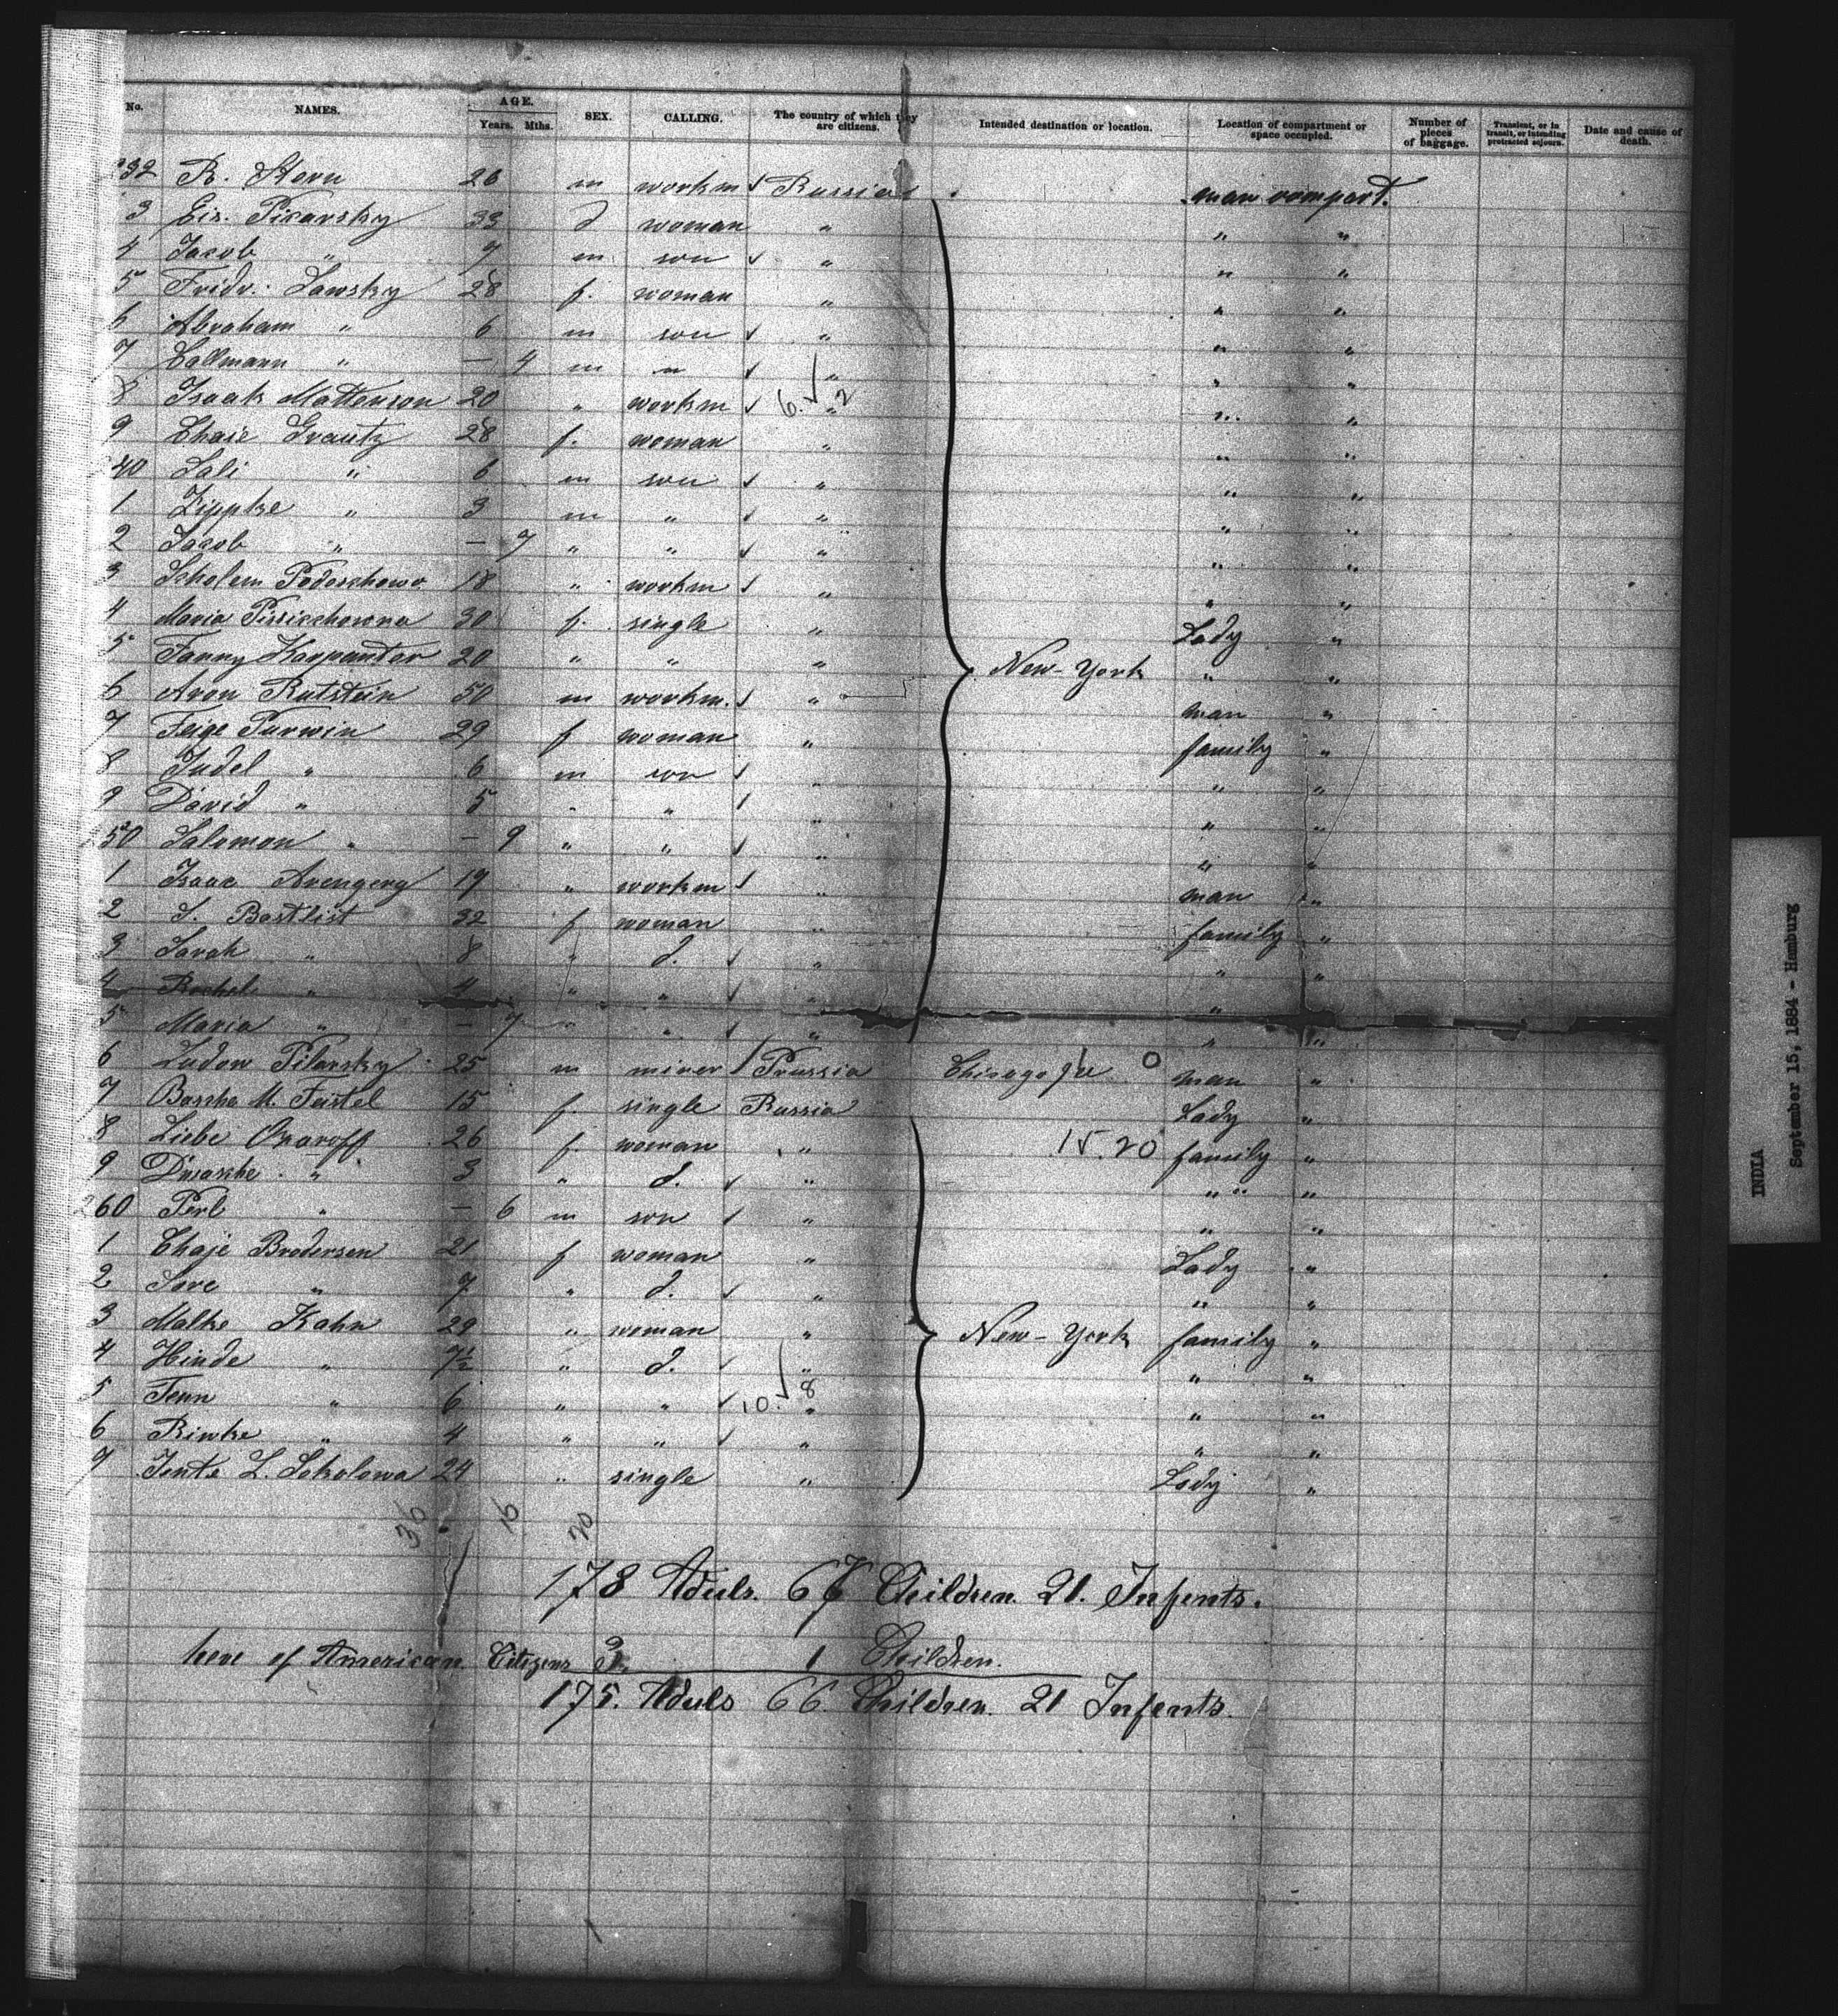 No. NAMES. AGE. Years. Mths. SEX. CALLING. The country of which they are citizens. Intended destination or location. Location of compartment or space occupied. Number of pieces of baggage. Transient, or in transit, or intending protracted sojourn. Date and cause of death.
232 R. Stern 26 m workm Russia man compart.
3 Eis. Picarsky 33 woman " " "
4 Jacob " 9 m son " " "
5 Fridr. Lawsky 28 f. woman " " "
6 Abraham " 6 m son " " "
7 Callmann " — 4 m " " " "
8 Isaak Mattenson 20 " workm " " " 6. 2
9 Chaie Grautz 28 f. woman " " "
240 Sali " 6 m son " " "
1 Zippke " 3 m " " " "
2 Jacob " — 7 " " " " "
3 Scholem Podoschowo 18 " workm " " "
4 Maria 30 f. single " Lady "
5 Fanny Karpanter 20 " " " New-York " "
6 Aron Rutstein 50 m workm. " man "
7 Feige Purwin 29 f woman " family "
8 Judel " 6 m son " " "
9 David " 5 " " " " "
250 Salomon " — 9 " " " " "
1 Isaac Arengerg 19 " workm " man "
2 S. Bastlist 32 f woman " family "
3 Sarah " 8 " d. " " "
4 Rochel " 4 " " " " "
5 Maria " — 7 " " " " "
6 Ludow Pilarsky 25 m miner Prussia Chicago 0 man "
7 Bascha M. Feistel 15 f. single Russia Lady "
8 Liebe Ozaroff 26 f. woman " 15.20 family "
9 Dwasche " 3 " d. " " "
260 Perl " — 6 m son " " "
1 Chaje Brodersen 21 f woman " Lady "
2 Sore " 9 " d. " " "
3 Malke Kahn 29 " woman " New-York family "
4 Hinde " 7½ " d. " " "
5 Fenn " 6 " " 10. 8 " " "
6 Riwke " 4 " " " " "
7 Jente L. Sokolowa 24 " single " Lady "
36 16 20
178 Aduls. 67 Children. 21. Infents.
heve of American Citizens 3. 1 Children.
175. Aduls 66. Children. 21 Infents.
INDIA
September 15, 1884 - Hamburg